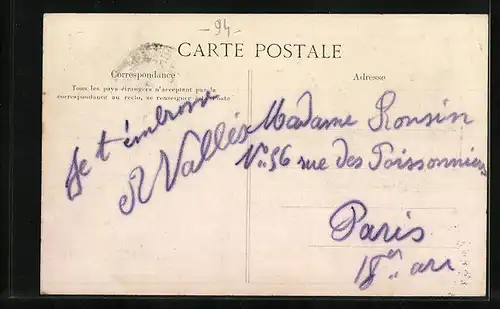 - 94 -
CARTE POSTALE
Correspondance
Tous les pays étrangers n'acceptent pas la
correspondance au recto, se renseigner à la Poste
Je t'embrasse
R Vallès
Adresse
Madame Rousin
N° 56 rue des Poissonniers
Paris
18e arr